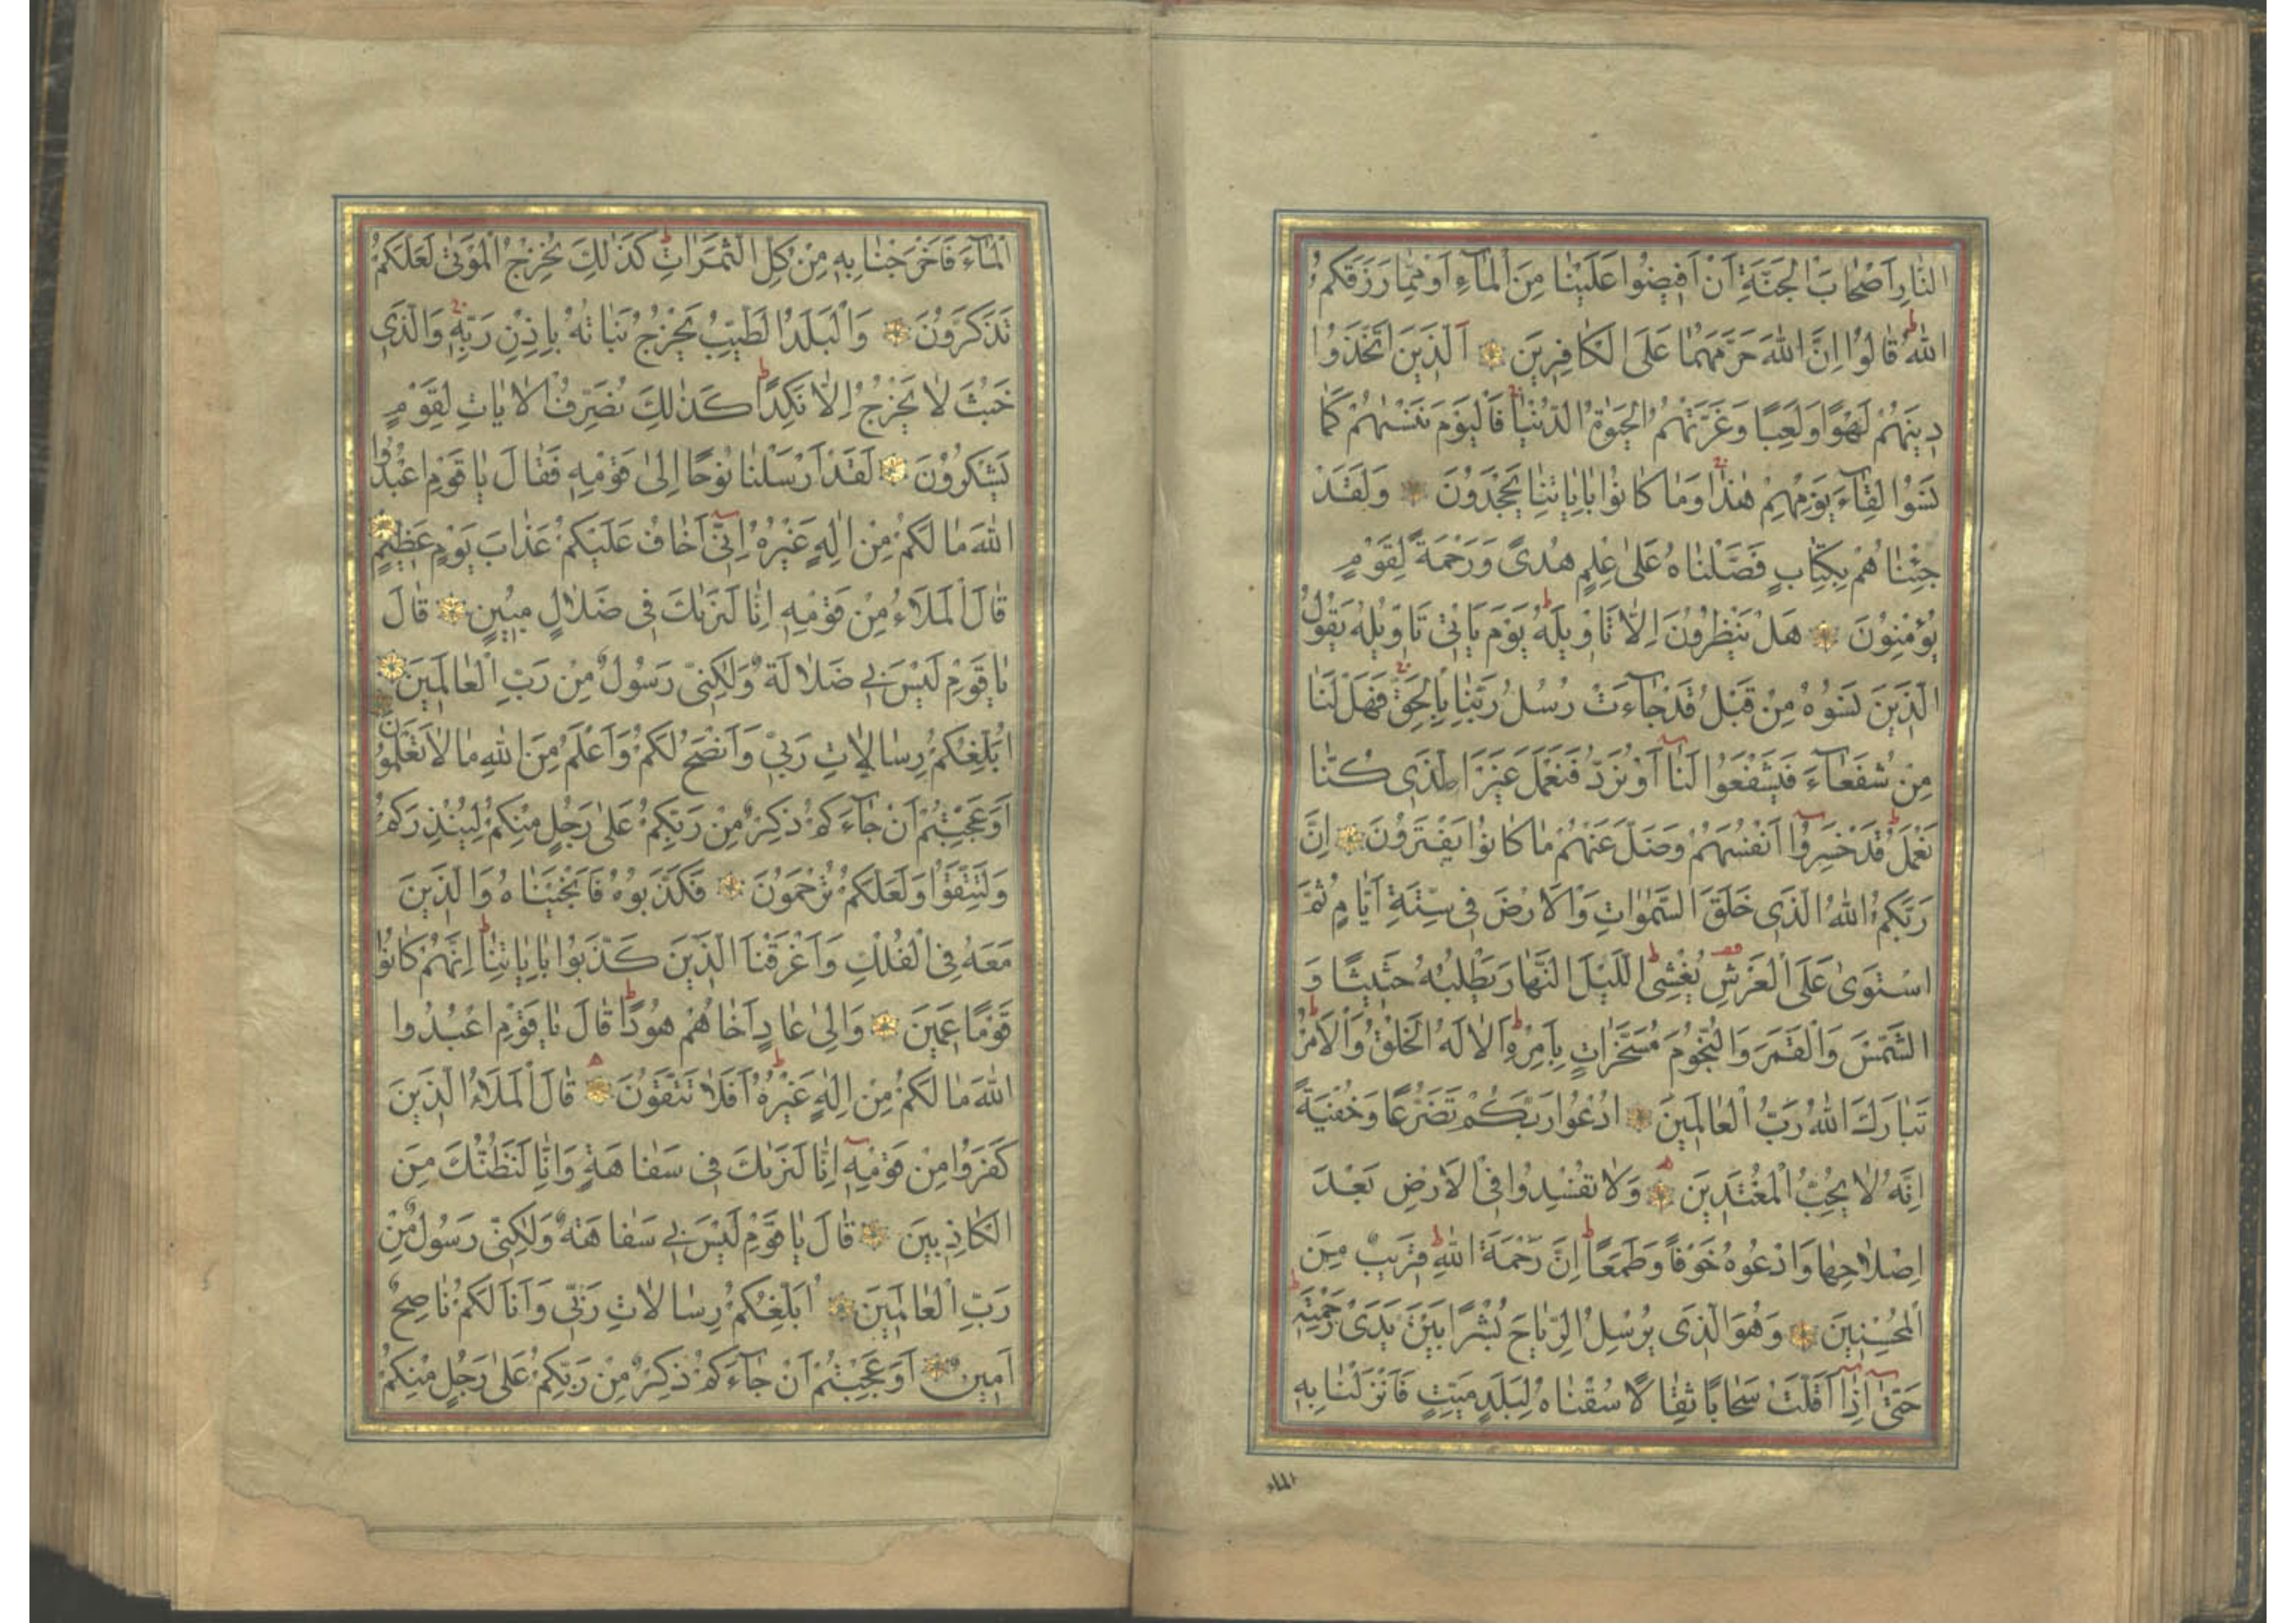 النَّارِ اَصْحَابَ الْجَنَّةِ اَنْ اَفِيضُوا عَلَيْنَا مِنَ الْمَاۤءِ اَوْ مِمَّا رَزَقَكُمُ
اللّٰهُ قَالُوا اِنَّ اللّٰهَ حَرَّمَهُمَا عَلَى الْكَافِرِينَ اَلَّذِينَ اتَّخَذُوا
دِينَهُمْ لَهْوًا وَلَعِبًا وَغَرَّتْهُمُ الْحَيٰوةُ الدُّنْيَا فَالْيَوْمَ نَنْسٰيهُمْ كَمَا
نَسُوا لِقَاۤءَ يَوْمِهِمْ هٰذَا وَمَا كَانُوا بِاٰيَاتِنَا يَجْحَدُونَ وَلَقَدْ
جِئْنَاهُمْ بِكِتَابٍ فَصَّلْنَاهُ عَلٰى عِلْمٍ هُدًى وَرَحْمَةً لِقَوْمٍ
يُؤْمِنُونَ هَلْ يَنْظُرُونَ اِلَّا تَاْوِيلَهُ يَوْمَ يَاْتِى تَاْوِيلُهُ يَقُولُ
الَّذِينَ نَسُوهُ مِنْ قَبْلُ قَدْ جَاۤءَتْ رُسُلُ رَبِّنَا بِالْحَقِّ فَهَلْ لَنَا
مِنْ شُفَعَاۤءَ فَيَشْفَعُوا لَنَا اَوْ نُرَدُّ فَنَعْمَلَ غَيْرَ الَّذِى كُنَّا
نَعْمَلُ قَدْ خَسِرُوا اَنْفُسَهُمْ وَضَلَّ عَنْهُمْ مَا كَانُوا يَفْتَرُونَ اِنَّ
رَبَّكُمُ اللّٰهُ الَّذِى خَلَقَ السَّمٰوَاتِ وَالْاَرْضَ فِى سِتَّةِ اَيَّامٍ ثُمَّ
اسْتَوٰى عَلَى الْعَرْشِ يُغْشِى اللَّيْلَ النَّهَارَ يَطْلُبُهُ حَثِيثًا وَ
الشَّمْسَ وَالْقَمَرَ وَالنُّجُومَ مُسَخَّرَاتٍ بِاَمْرِهِ اَلَا لَهُ الْخَلْقُ وَالْاَمْرُ
تَبَارَكَ اللّٰهُ رَبُّ الْعَالَمِينَ اُدْعُوا رَبَّكُمْ تَضَرُّعًا وَخُفْيَةً
اِنَّهُ لَا يُحِبُّ الْمُعْتَدِينَ وَلَا تُفْسِدُوا فِى الْاَرْضِ بَعْدَ
اِصْلَاحِهَا وَادْعُوهُ خَوْفًا وَطَمَعًا اِنَّ رَحْمَةَ اللّٰهِ قَرِيبٌ مِنَ
الْمُحْسِنِينَ وَهُوَ الَّذِى يُرْسِلُ الرِّيَاحَ بُشْرًا بَيْنَ يَدَىْ رَحْمَتِهِ
حَتّٰى اِذَا اَقَلَّتْ سَحَابًا ثِقَالًا سُقْنَاهُ لِبَلَدٍ مَيِّتٍ فَاَنْزَلْنَا بِهِ
الماء
الْمَاۤءَ فَاَخْرَجْنَا بِهِ مِنْ كُلِّ الثَّمَرَاتِ كَذٰلِكَ نُخْرِجُ الْمَوْتٰى لَعَلَّكُمْ
تَذَكَّرُونَ وَالْبَلَدُ الطَّيِّبُ يَخْرُجُ نَبَاتُهُ بِاِذْنِ رَبِّهِ وَالَّذِى
خَبُثَ لَا يَخْرُجُ اِلَّا نَكِدًا كَذٰلِكَ نُصَرِّفُ الْاٰيَاتِ لِقَوْمٍ
يَشْكُرُونَ لَقَدْ اَرْسَلْنَا نُوحًا اِلٰى قَوْمِهِ فَقَالَ يَا قَوْمِ اعْبُدُوا
اللّٰهَ مَا لَكُمْ مِنْ اِلٰهٍ غَيْرُهُ اِنِّى اَخَافُ عَلَيْكُمْ عَذَابَ يَوْمٍ عَظِيمٍ
قَالَ الْمَلَاُ مِنْ قَوْمِهِ اِنَّا لَنَرٰيكَ فِى ضَلَالٍ مُبِينٍ قَالَ
يَا قَوْمِ لَيْسَ بِى ضَلَالَةٌ وَلٰكِنِّى رَسُولٌ مِنْ رَبِّ الْعَالَمِينَ
اُبَلِّغُكُمْ رِسَالَاتِ رَبِّى وَاَنْصَحُ لَكُمْ وَاَعْلَمُ مِنَ اللّٰهِ مَا لَا تَعْلَمُونَ
اَوَعَجِبْتُمْ اَنْ جَاۤءَكُمْ ذِكْرٌ مِنْ رَبِّكُمْ عَلٰى رَجُلٍ مِنْكُمْ لِيُنْذِرَكُمْ
وَلِتَتَّقُوا وَلَعَلَّكُمْ تُرْحَمُونَ فَكَذَّبُوهُ فَاَنْجَيْنَاهُ وَالَّذِينَ
مَعَهُ فِى الْفُلْكِ وَاَغْرَقْنَا الَّذِينَ كَذَّبُوا بِاٰيَاتِنَا اِنَّهُمْ كَانُوا
قَوْمًا عَمِينَ وَاِلٰى عَادٍ اَخَاهُمْ هُودًا قَالَ يَا قَوْمِ اعْبُدُوا
اللّٰهَ مَا لَكُمْ مِنْ اِلٰهٍ غَيْرُهُ اَفَلَا تَتَّقُونَ قَالَ الْمَلَاُ الَّذِينَ
كَفَرُوا مِنْ قَوْمِهِ اِنَّا لَنَرٰيكَ فِى سَفَاهَةٍ وَاِنَّا لَنَظُنُّكَ مِنَ
الْكَاذِبِينَ قَالَ يَا قَوْمِ لَيْسَ بِى سَفَاهَةٌ وَلٰكِنِّى رَسُولٌ مِنْ
رَبِّ الْعَالَمِينَ اُبَلِّغُكُمْ رِسَالَاتِ رَبِّى وَاَنَا لَكُمْ نَاصِحٌ
اَمِينٌ اَوَعَجِبْتُمْ اَنْ جَاۤءَكُمْ ذِكْرٌ مِنْ رَبِّكُمْ عَلٰى رَجُلٍ مِنْكُمْ